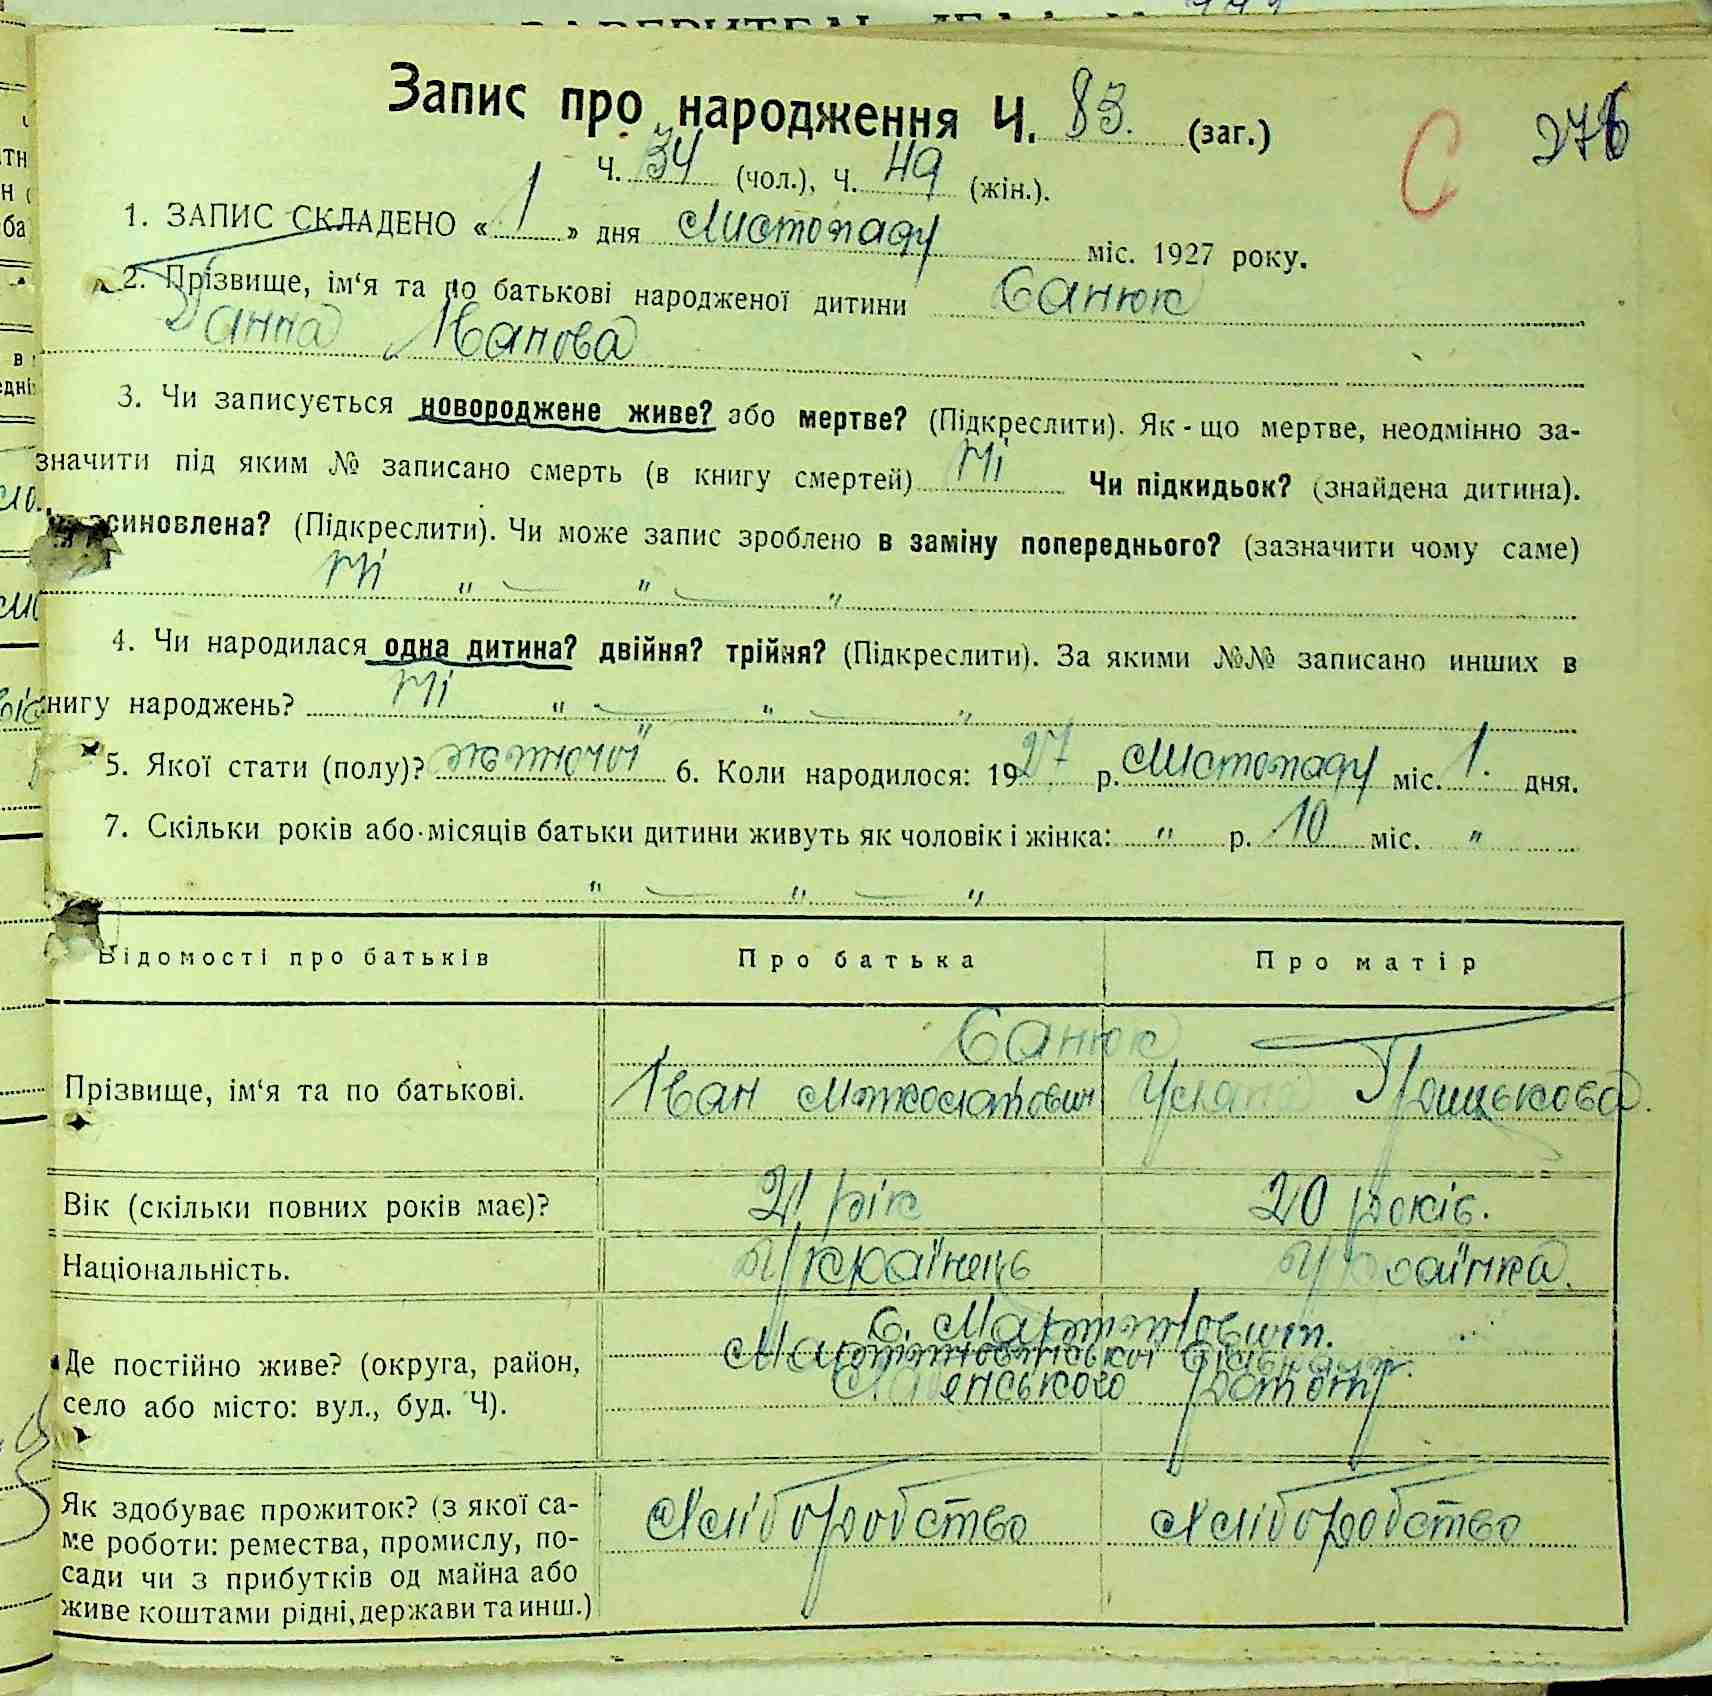 Запис про народження Ч. 83. (заг.)
276
С
Ч. 34 (чол.), Ч. 49 (жін.).
1. ЗАПИС СКЛАДЕНО « 1 » дня Листопаду міс. 1927 року.
2. Прізвище, ім‘я та по батькові народженої дитини Санюк
Ганна Іванова
3. Чи записується новороджене живе? або мертве? (Підкреслити). Як-що мертве, неодмінно за-
значити під яким № записано смерть (в книгу смертей) Ні Чи підкидьок? (знайдена дитина).
всиновлена? (Підкреслити). Чи може запис зроблено в заміну попереднього? (зазначити чому саме)
Ні „ — „ — „
4. Чи народилася одна дитина? двійня? трійня? (Підкреслити). За якими №№ записано инших в
книгу народжень? Ні „ — „ — „
5. Якої стати (полу)? жіночої 6. Коли народилося: 1927 р. Листопаду міс. 1. дня.
7. Скільки років або місяців батьки дитини живуть як чоловік і жінка: „ р. 10 міс. „
„ — „ — „
Відомості про батьків Про батька Про матір
Санюк
Прізвище, ім‘я та по батькові. Іван Грицькова
Вік (скільки повних років має)? 21 рік 20 років.
Національність. Українець Українка.
с.
Де постійно живе? (округа, район,
село або місто: вул., буд. Ч).
Як здобуває прожиток? (з якої са-
ме роботи: ремества, промислу, по-
сади чи з прибутків од майна або
живе коштами рідні, держави та инш.)
Хліборобство Хліборобство